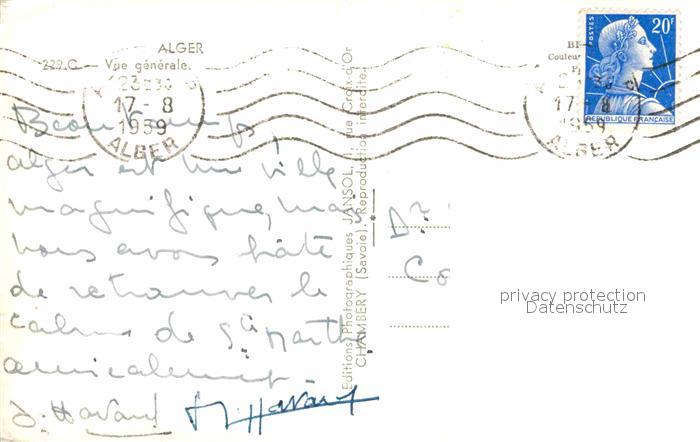 ALGER
229.C - Vue générale.
23H30
17-8
1959
ALGER
Beau temps,
alger est une ville
magnifique, mais
nous avons hâte
de retrouver le
calme de Ste Marthe
amicalement
J. Havard
Editions Photographiques JANSOL, Croix d'Or
CHAMBERY (Savoie). Reproduction interdite.
POSTES
20F
REPUBLIQUE FRANÇAISE
17-8
1959
ALGER
Dr
Co
privacy protection
Datenschutz